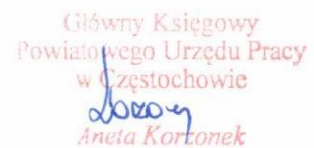 Główny Księgowy
Powiatowego Urzędu Pracy
w Częstochowie
Aneta Korzonek